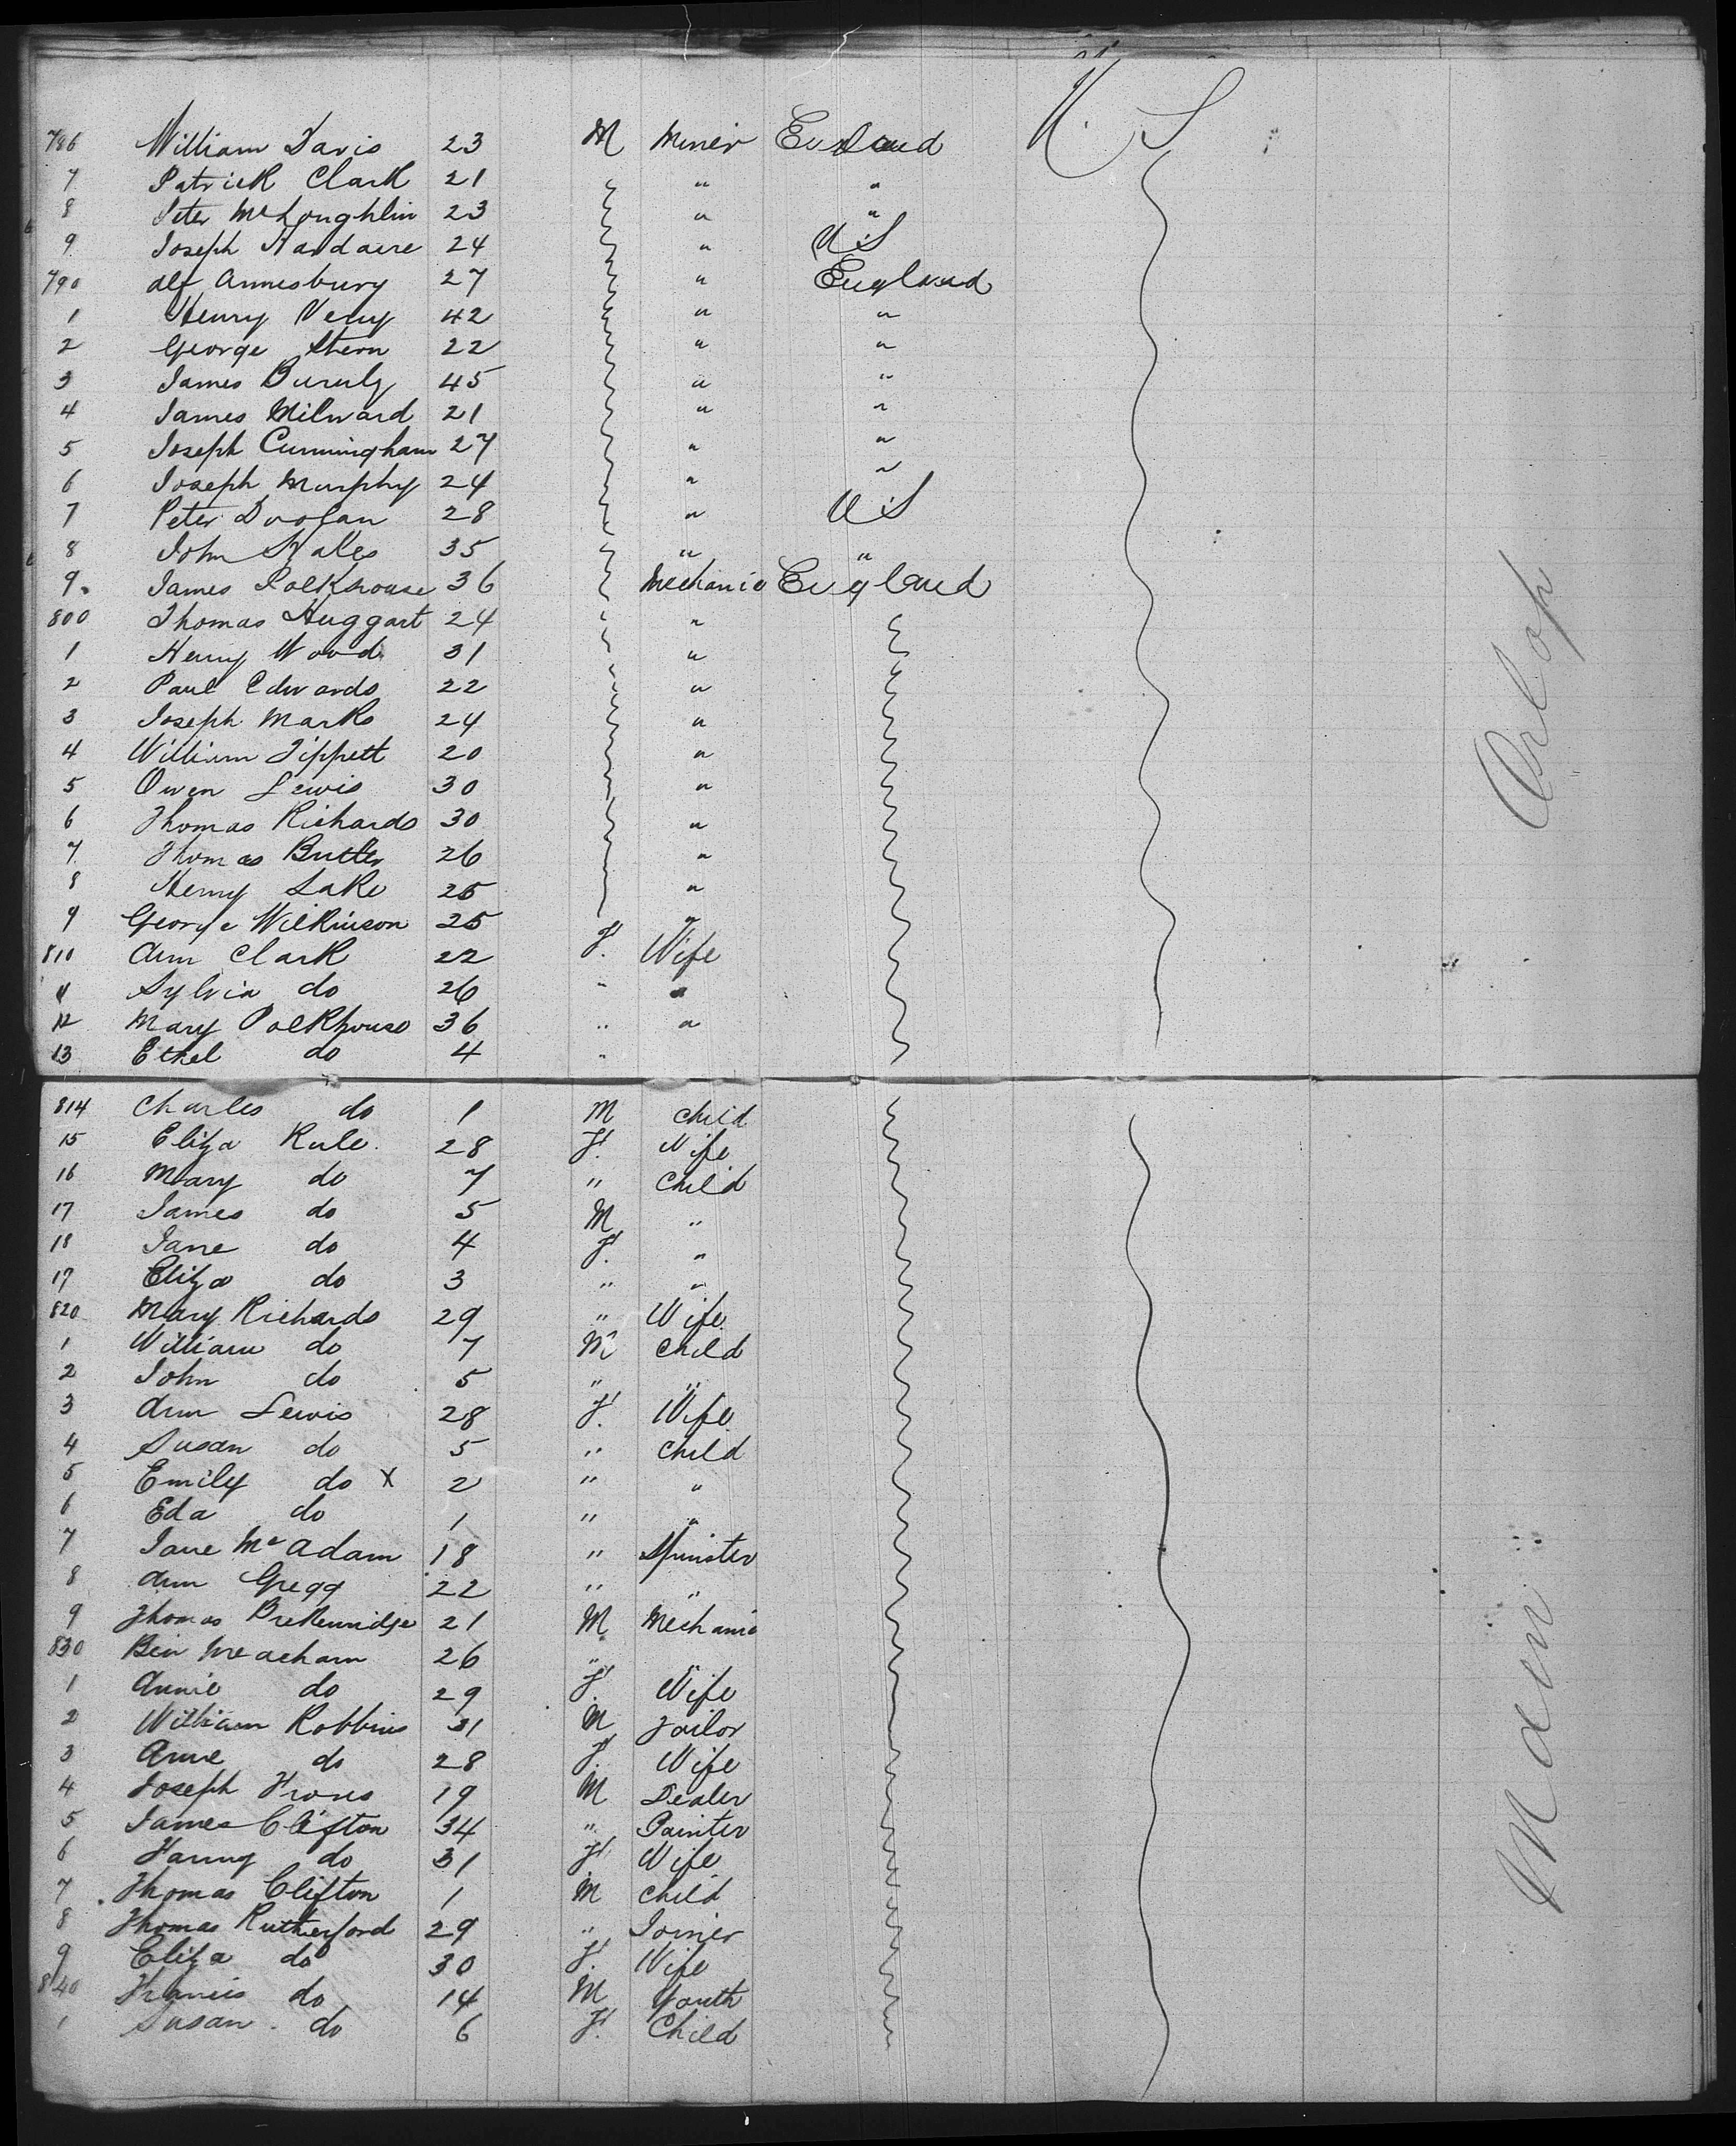 U. S
786 William Davis 23 M Miner England
7 Patrick Clark 21 " "
8 Peter McLoughlin 23 " "
9 Joseph 24 " U.S
790 Alf Annesbury 27 " England
1 Henry Very 42 " "
2 George Stern 22 " "
3 James 45 " "
4 James Milward 21 " "
5 Joseph Cunningham 27 " "
6 Joseph Murphy 24 " "
7 Peter Doolan 28 " U.S
8 John 35 " "
9. James Polkhouse 36 Mechanic England
800 Thomas Huggart 24 "
1 Henry Wood 31 "
2 Paul Edwards 22 "
3 Joseph Marks 24 "
4 William Tippett 20 "
5 Owen Lewis 30 "
6 Thomas Richards 30 "
7 Thomas Butler 26 "
8 Henry Lake 25 "
9 George Wilkinson 25 "
810 Ann Clark 22 F. Wife
11 Sylvia do 26 " "
12 Mary Polkhouse 36 " "
13 Ethel do 4 "
Orlop
814 Charles do 1 M Child
15 Eliza Rule 28 F. Wife
16 Mary do 7 " Child
17 James do 5 M "
18 Jane do 4 F. "
17 Eliza do 3 " "
820 Mary Richards 29 " Wife
1 William do 7 M Child
2 John do 5 " "
3 Ann Lewis 28 F. Wife
4 Susan do 5 " Child
5 Emily do X 2 " "
6 Eda do 1 " "
7 Jane McAdam 18 " Spinster
8 Ann Gregg 22 " "
9 Thomas Brekenridge 21 M Mechanic
830 Ben Meacham 26 " "
1 Annie do 29 F. Wife
2 William Robbins 31 M Tailor
3 Anne do 28 F. Wife
4 Joseph 19 M Dealer
5 James Clifton 34 " Painter
6 Fanny do 31 F. Wife
7 Thomas Clifton 1 M Child
8 Thomas Rutherford 29 " Joiner
9 Eliza do 30 F. Wife
840 Francis do 14 M Youth
1 Susan do 6 F. Child
Main